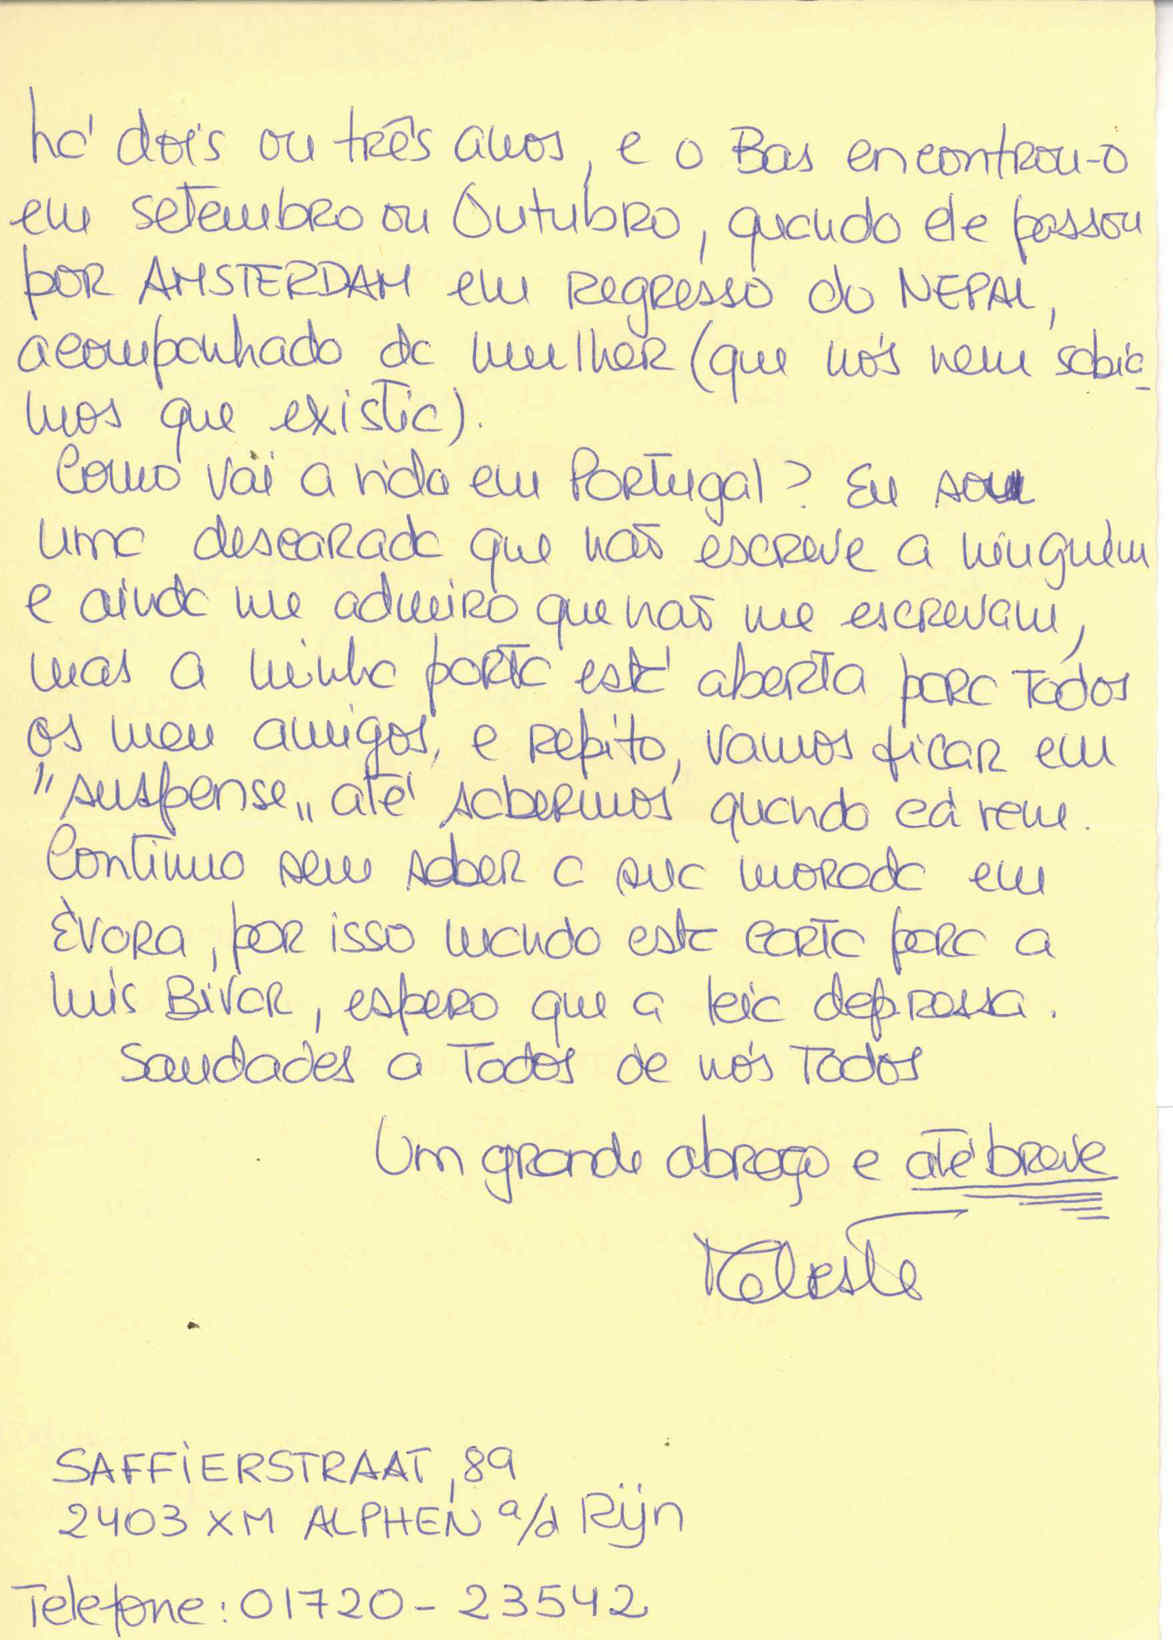 há dois ou três anos, e o Bas encontrou-o
em setembro ou Outubro, quando ele passou
por AMSTERDAM em regresso do NEPAL,
acompanhado da mulher (que nós nem sabía-
mos que existia).
Como vai a vida em Portugal? Eu sou
uma descarada que não escreve a ninguém
e ainda me admiro que não me escrevam,
mas a minha porta está aberta para todos
os meu amigos, e repito, vamos ficar em
"suspense" até sabermos quando cá vem.
Continuo sem saber a sua morada em
Èvora, por isso mando esta carta para a
Luis Bivar, espero que a leia depressa.
Saudades a Todos de nós Todos
Um grande abraço e até breve
Celeste
SAFFIERSTRAAT, 89
2403 XM ALPHEN a/d Rijn
Telefone: 01720 - 23542